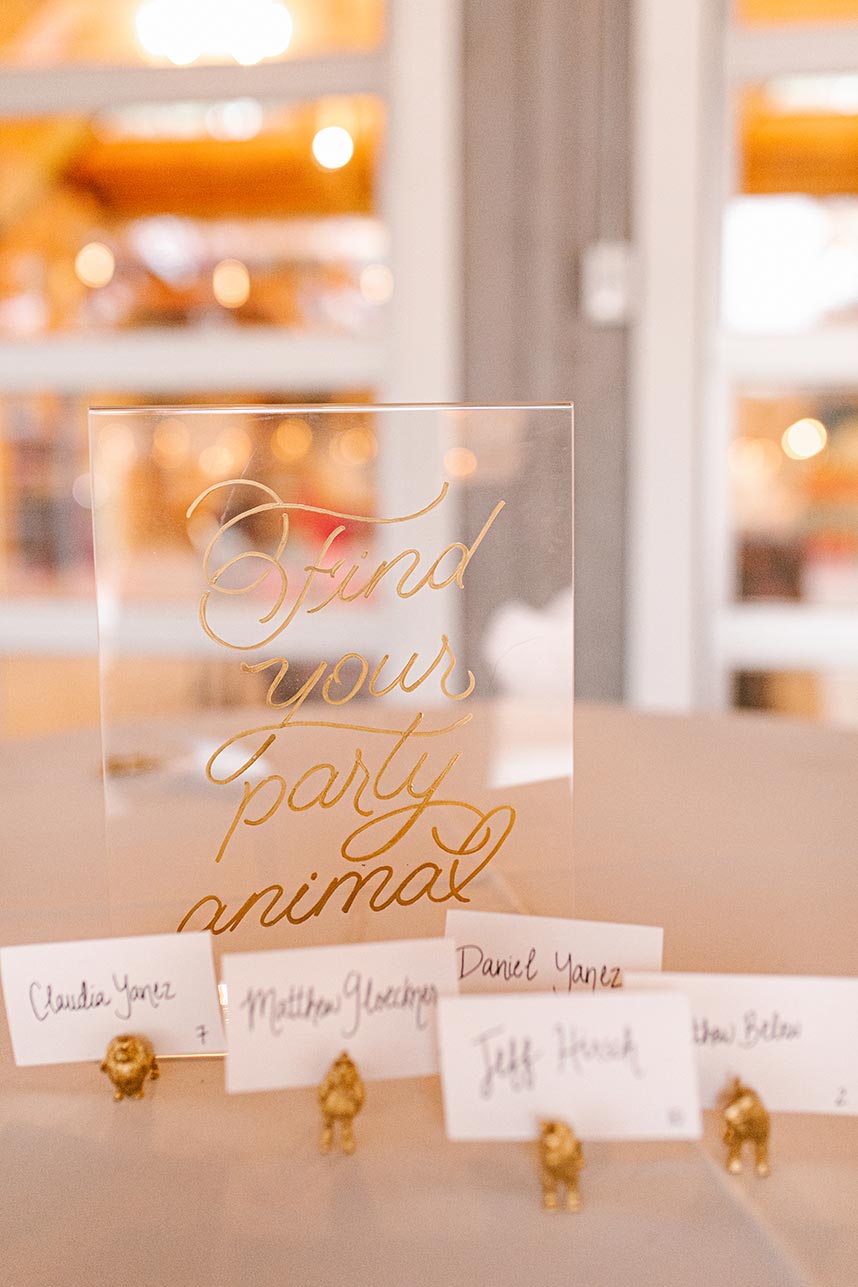 Find
your
party
animal
Claudia Yanez
7
Matthew Gloeckner
Daniel Yanez
Jeff Hirsch
thew Below
2